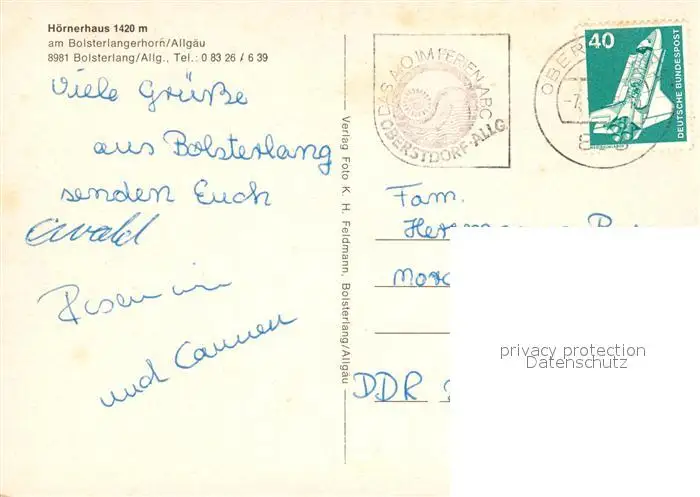 Hörnerhaus 1420 m
am Bolsterlangerhorn/Allgäu
8981 Bolsterlang/Allg., Tel.: 0 83 26 / 6 39
Viele Grüße
aus Bolsterlang
senden Euch
Ewald
und Carmen
Verlag Foto K. H. Feldmann, Bolsterlang/Allgäu
DAS A-O IM FERIEN ABC
OBERSTDORF-ALLG
OBER
40
DEUTSCHE BUNDESPOST
Fam.
DDR
privacy protection
Datenschutz